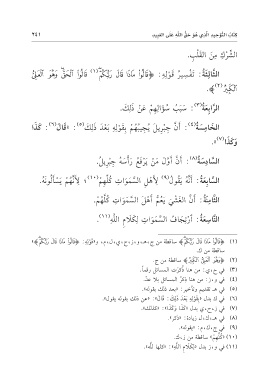 كتاب التوحيد الذي هو حق الله على العبيد ٢٤١
الشِّرْكِ مِنَ القَلْبِ.
الثَّالِثَةُ: تَفْسِيرُ قَوْلِهِ: ﴿قَالُوا مَاذَا قَالَ رَبُّكُمْ(١) قَالُوا الْحَقَّ وَهُوَ الْعَلِيُّ
الْكَبِيرُ(٢)﴾.
الرَّابِعَةُ(٣): سَبَبُ سُؤَالِهِمْ عَنْ ذَلِكَ.
الخَامِسَةُ(٤): أَنَّ جِبْرِيلَ يُجِيبُهُمْ بِقَوْلِهِ بَعْدَ ذَلِكَ(٥): «قَالَ(٦): كَذَا
وَكَذَا(٧)».
السَّادِسَةُ(٨): أَنَّ أَوَّلَ مَنْ يَرْفَعُ رَأْسَهُ جِبْرِيلُ.
السَّابِعَةُ: أَنَّهُ يَقُولُ(٩) لِأَهْلِ السَّمَوَاتِ كُلِّهِمْ(١٠)؛ لِأَنَّهُمْ يَسْأَلُونَهُ.
الثَّامِنَةُ: أَنَّ الغَشْيَ يَعُمُّ أَهْلَ السَّمَوَاتِ كُلَّهُمْ.
التَّاسِعَةُ: ارْتِجَافُ السَّمَوَاتِ لِكَلَامِ اللَّهِ(١١).
(١) ﴿قَالُوا مَاذَا قَالَ رَبُّكُمْ﴾ ساقطة من
ساقطة من ك.
(٢) ﴿وَهُوَ الْعَلِيُّ الْكَبِيرُ﴾ ساقطة من ج.
(٣) في ح،ي: من هنا ذكرت المسائل رقماً.
(٤) في و،ز: من هنا ذكر المسائل بلا عد.
(٥) في هـ تقديم وتأخير: «بعد ذلك بقوله».
(٦) في ك بدل «بقوله بعد ذلك: قال»: «عن ذلك بقوله يقول».
(٧) في ي بدل «كذا وكذا»: «كذلك».
(٨) في هـ،ك،ل زيادة: «ذكر».
(٩) في ج،ك،م: «بقوله».
(١٠) «كلهم» ساقطة من ز،ك.
(١١) في و،ز بدل «لكلام الله»: «كلها لله».